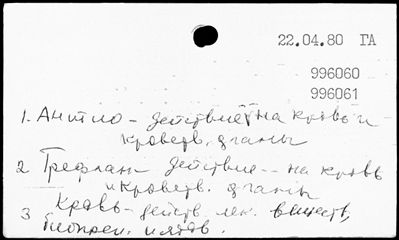 22.04.80 ГА
996060
996061
1. Антио - действие на кровь и
кроветв. органы
2 Трефлан действие -- на кровь
и кроветв. органы
3 Кровь - действ. лек. веществ,
и ядов.